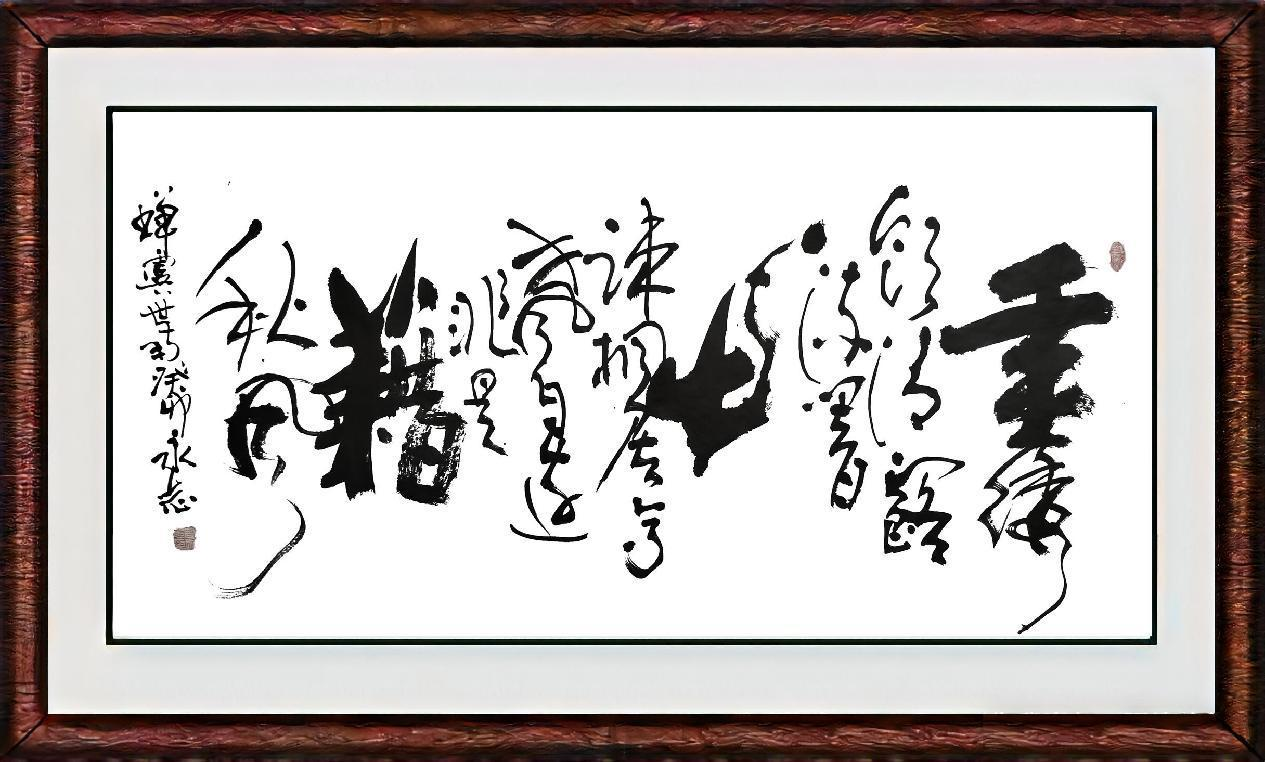 垂緌
飲清露
流響
出
疏桐居高
聲自遠
非是
藉
秋風
蟬虞世南癸卯永志